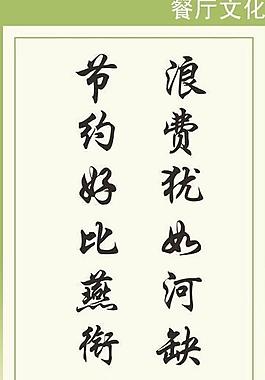 餐厅文化
节约好比燕衔
浪费犹如河缺